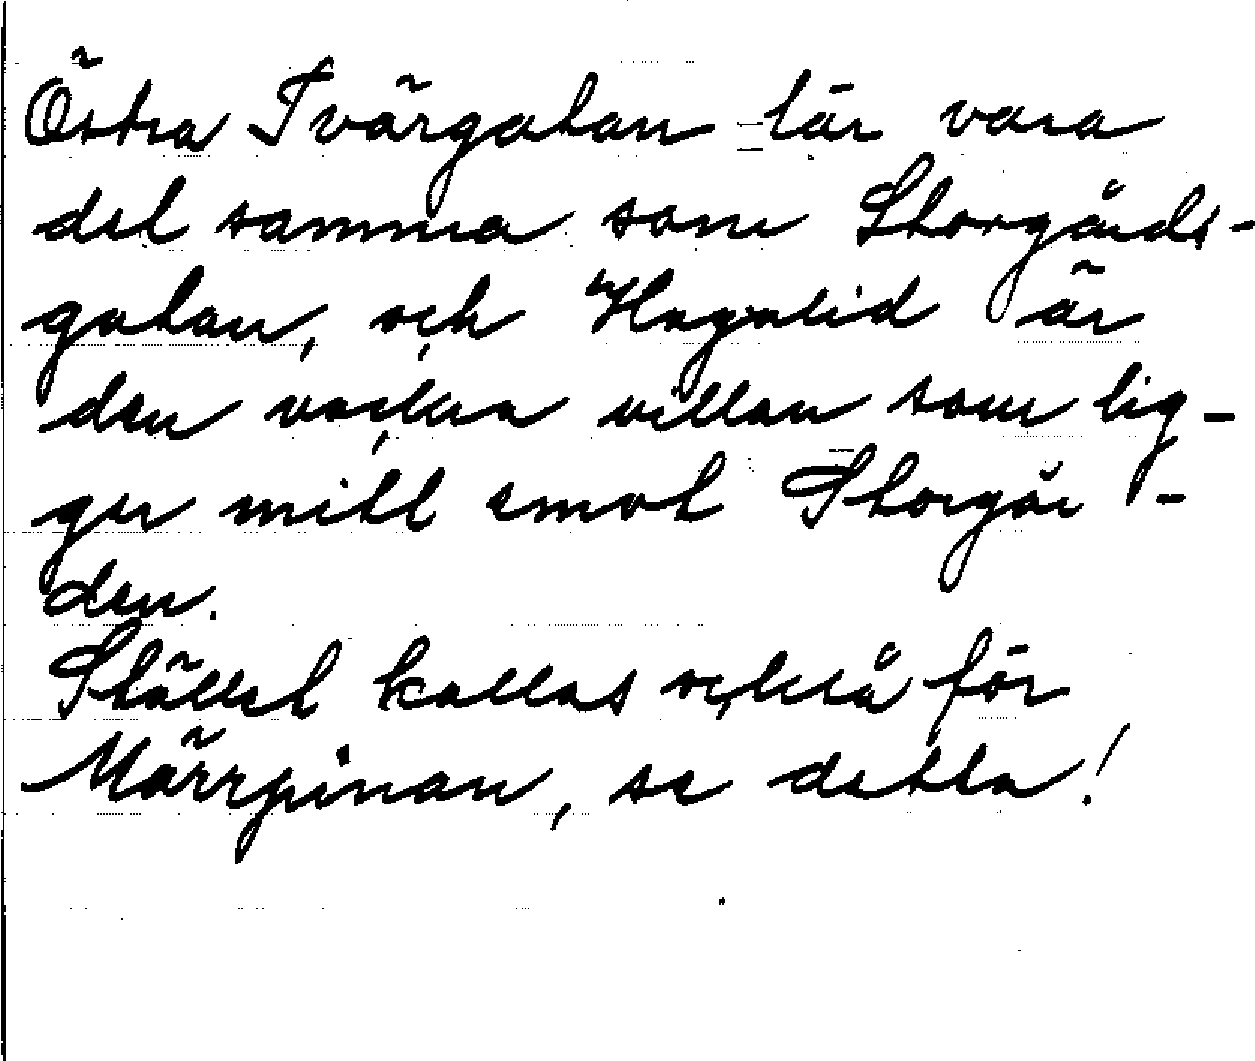 Östra Tvärgatan lär vara
det samma som Storgårds-
gatan, och Hagalid är
den vackra villan som lig-
ger mitt emot Storgår-
den.
Stället kallas också för
Märrpinan, se detta!